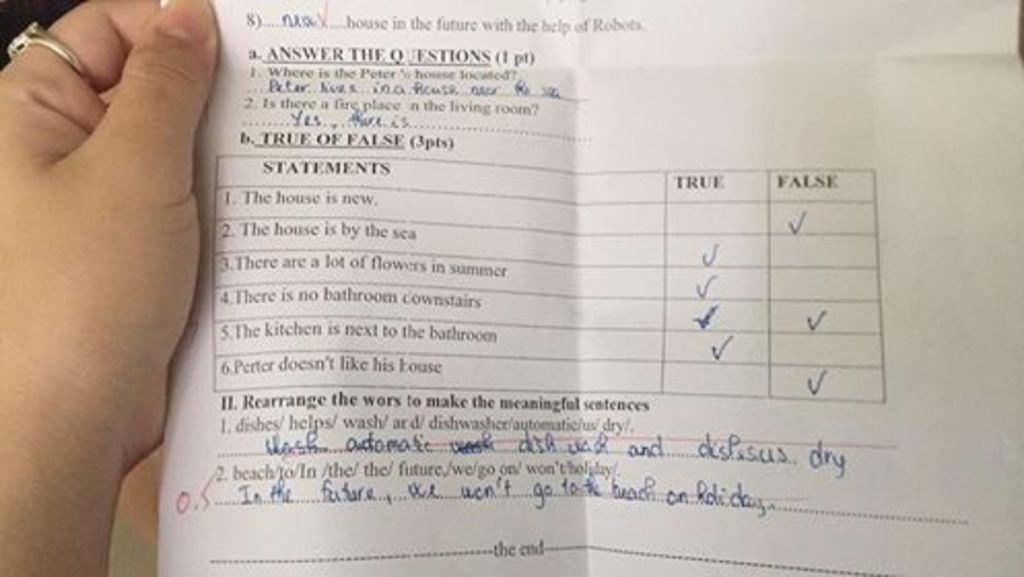 8)....near....house in the future with the help of Robots.
a. ANSWER THE Q ESTIONS (1 pt)
1. Where is the Peter 's house located?
Peter lives in a house near the sea
2. Is there a fire place n the living room?
Yes, there is
b. TRUE OF FALSE (3pts)
STATEMENTS TRUE FALSE
1. The house is new. ✓
2. The house is by the sea ✓
3.There are a lot of flowers in summer ✓
4.There is no bathroom cownstairs ✓
5.The kitchen is next to the bathroom ✓
6.Perter doesn't like his house ✓
II. Rearrange the wors to make the meaningful sentences
1. dishes/ helps/ wash/ ar d/ dishwasher/automatic/us/ dry/.
automatic dish wash and dry
2. beach/to/In /the/ the/ future,/we/go on/ won't/holiday/.
0.5 In the future, we won't go to the beach on holiday.
-the end-